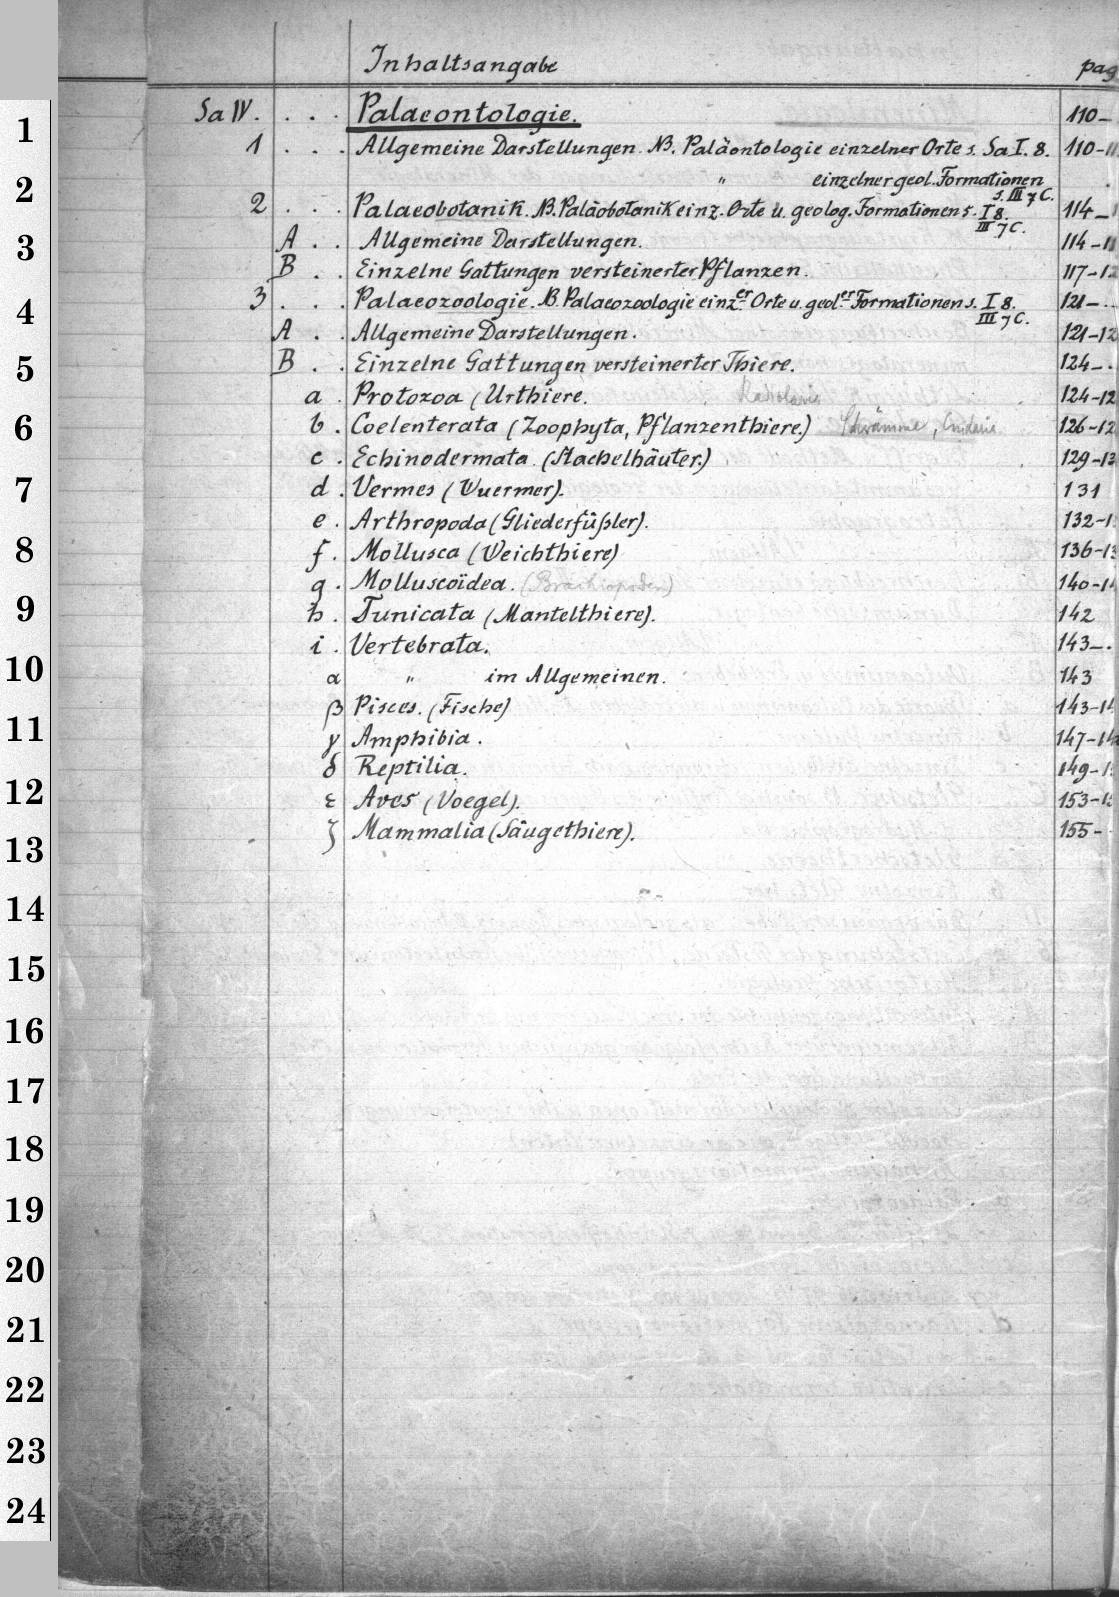 Inhaltsangabe pag
Sa IV. . . . Palaeontologie. 110-
1 . . . Allgemeine Darstellungen. NB. Paläontologie einzelner Orte s. Sa I. 8. 110-
" einzelner geol. Formationen
s. III 7 C.
2 . . . Palaeobotanik. NB. Paläobotanik einz. Orte u. geolog. Formationen s. I 8. 114-
III 7 C.
A . . Allgemeine Darstellungen. 114-
B . . Einzelne Gattungen versteinerter Pflanzen. 117-12
3 . . . Palaeozoologie. NB. Palaeozoologie einzer Orte u. geoler Formationen s. I 8. 121-
III 7 C.
A . . Allgemeine Darstellungen. 121-12
B . . Einzelne Gattungen versteinerter Thiere. 124-
a . Protozoa (Urthiere. 124-12
b . Coelenterata (Zoophyta, Pflanzenthiere.) Schwämme, 126-12
c . Echinodermata. (Stachelhäuter.) 129-13
d . Vermes (Wuermer). 131
e . Arthropoda (Gliederfüßler). 132-1
f . Mollusca (Weichthiere) 136-13
g . Molluscoïdea. (Brachiopoden) 140-14
h . Tunicata (Mantelthiere). 142
i . Vertebrata. 143-
α " im Allgemeinen. 143
β Pisces. (Fische) 143-14
γ Amphibia. 147-14
δ Reptilia. 149-1
ε Aves (Voegel). 153-15
ζ Mammalia (Säugethiere). 155-
1
2
3
4
5
6
7
8
9
10
11
12
13
14
15
16
17
18
19
20
21
22
23
24